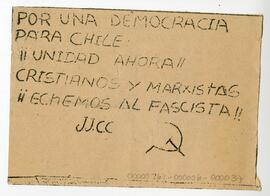 POR UNA DEMOCRACIA
PARA CHILE:
¡¡UNIDAD AHORA!!
CRISTIANOS Y MARXISTAS
¡¡ECHEMOS AL FASCISTA!!
JJ.CC